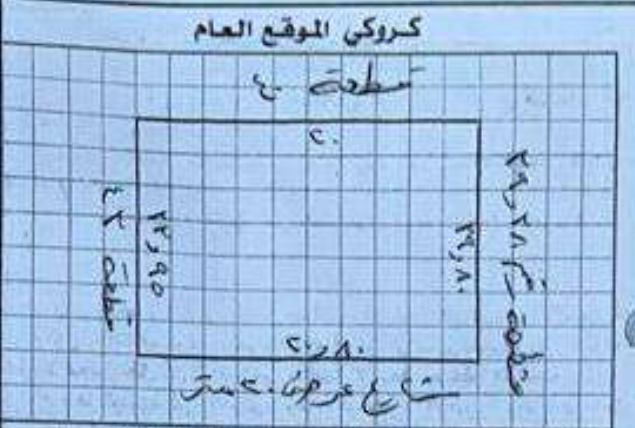 كروكي الموقع العام
قطعة ٤٠
٢٠
قطعة ٤٢
٢٣٫٩٥
٢٩٫٨٠
قطعة رقم ٣٨ و ٣٩
٢٠٫٨٠
شارع عرض ٢٠ متر